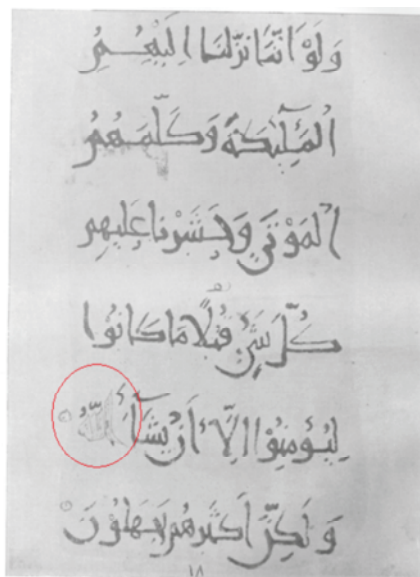 وَلَوَ اَنَّنَا نَزَّلْنَا إِلَيْهِمُ
الْمَلَٰٓئِكَةَ وَكَلَّمَهُمُ
الْمَوْتَىٰ وَحَشَرْنَا عَلَيْهِمْ
كُلَّ شَيْءٍ قُبُلًا مَّا كَانُوا
لِيُؤْمِنُوٓا إِلَّآ أَنْ يَشَآءَ اللَّهُ
وَلَٰكِنَّ أَكْثَرَهُمْ يَجْهَلُونَ
١٨